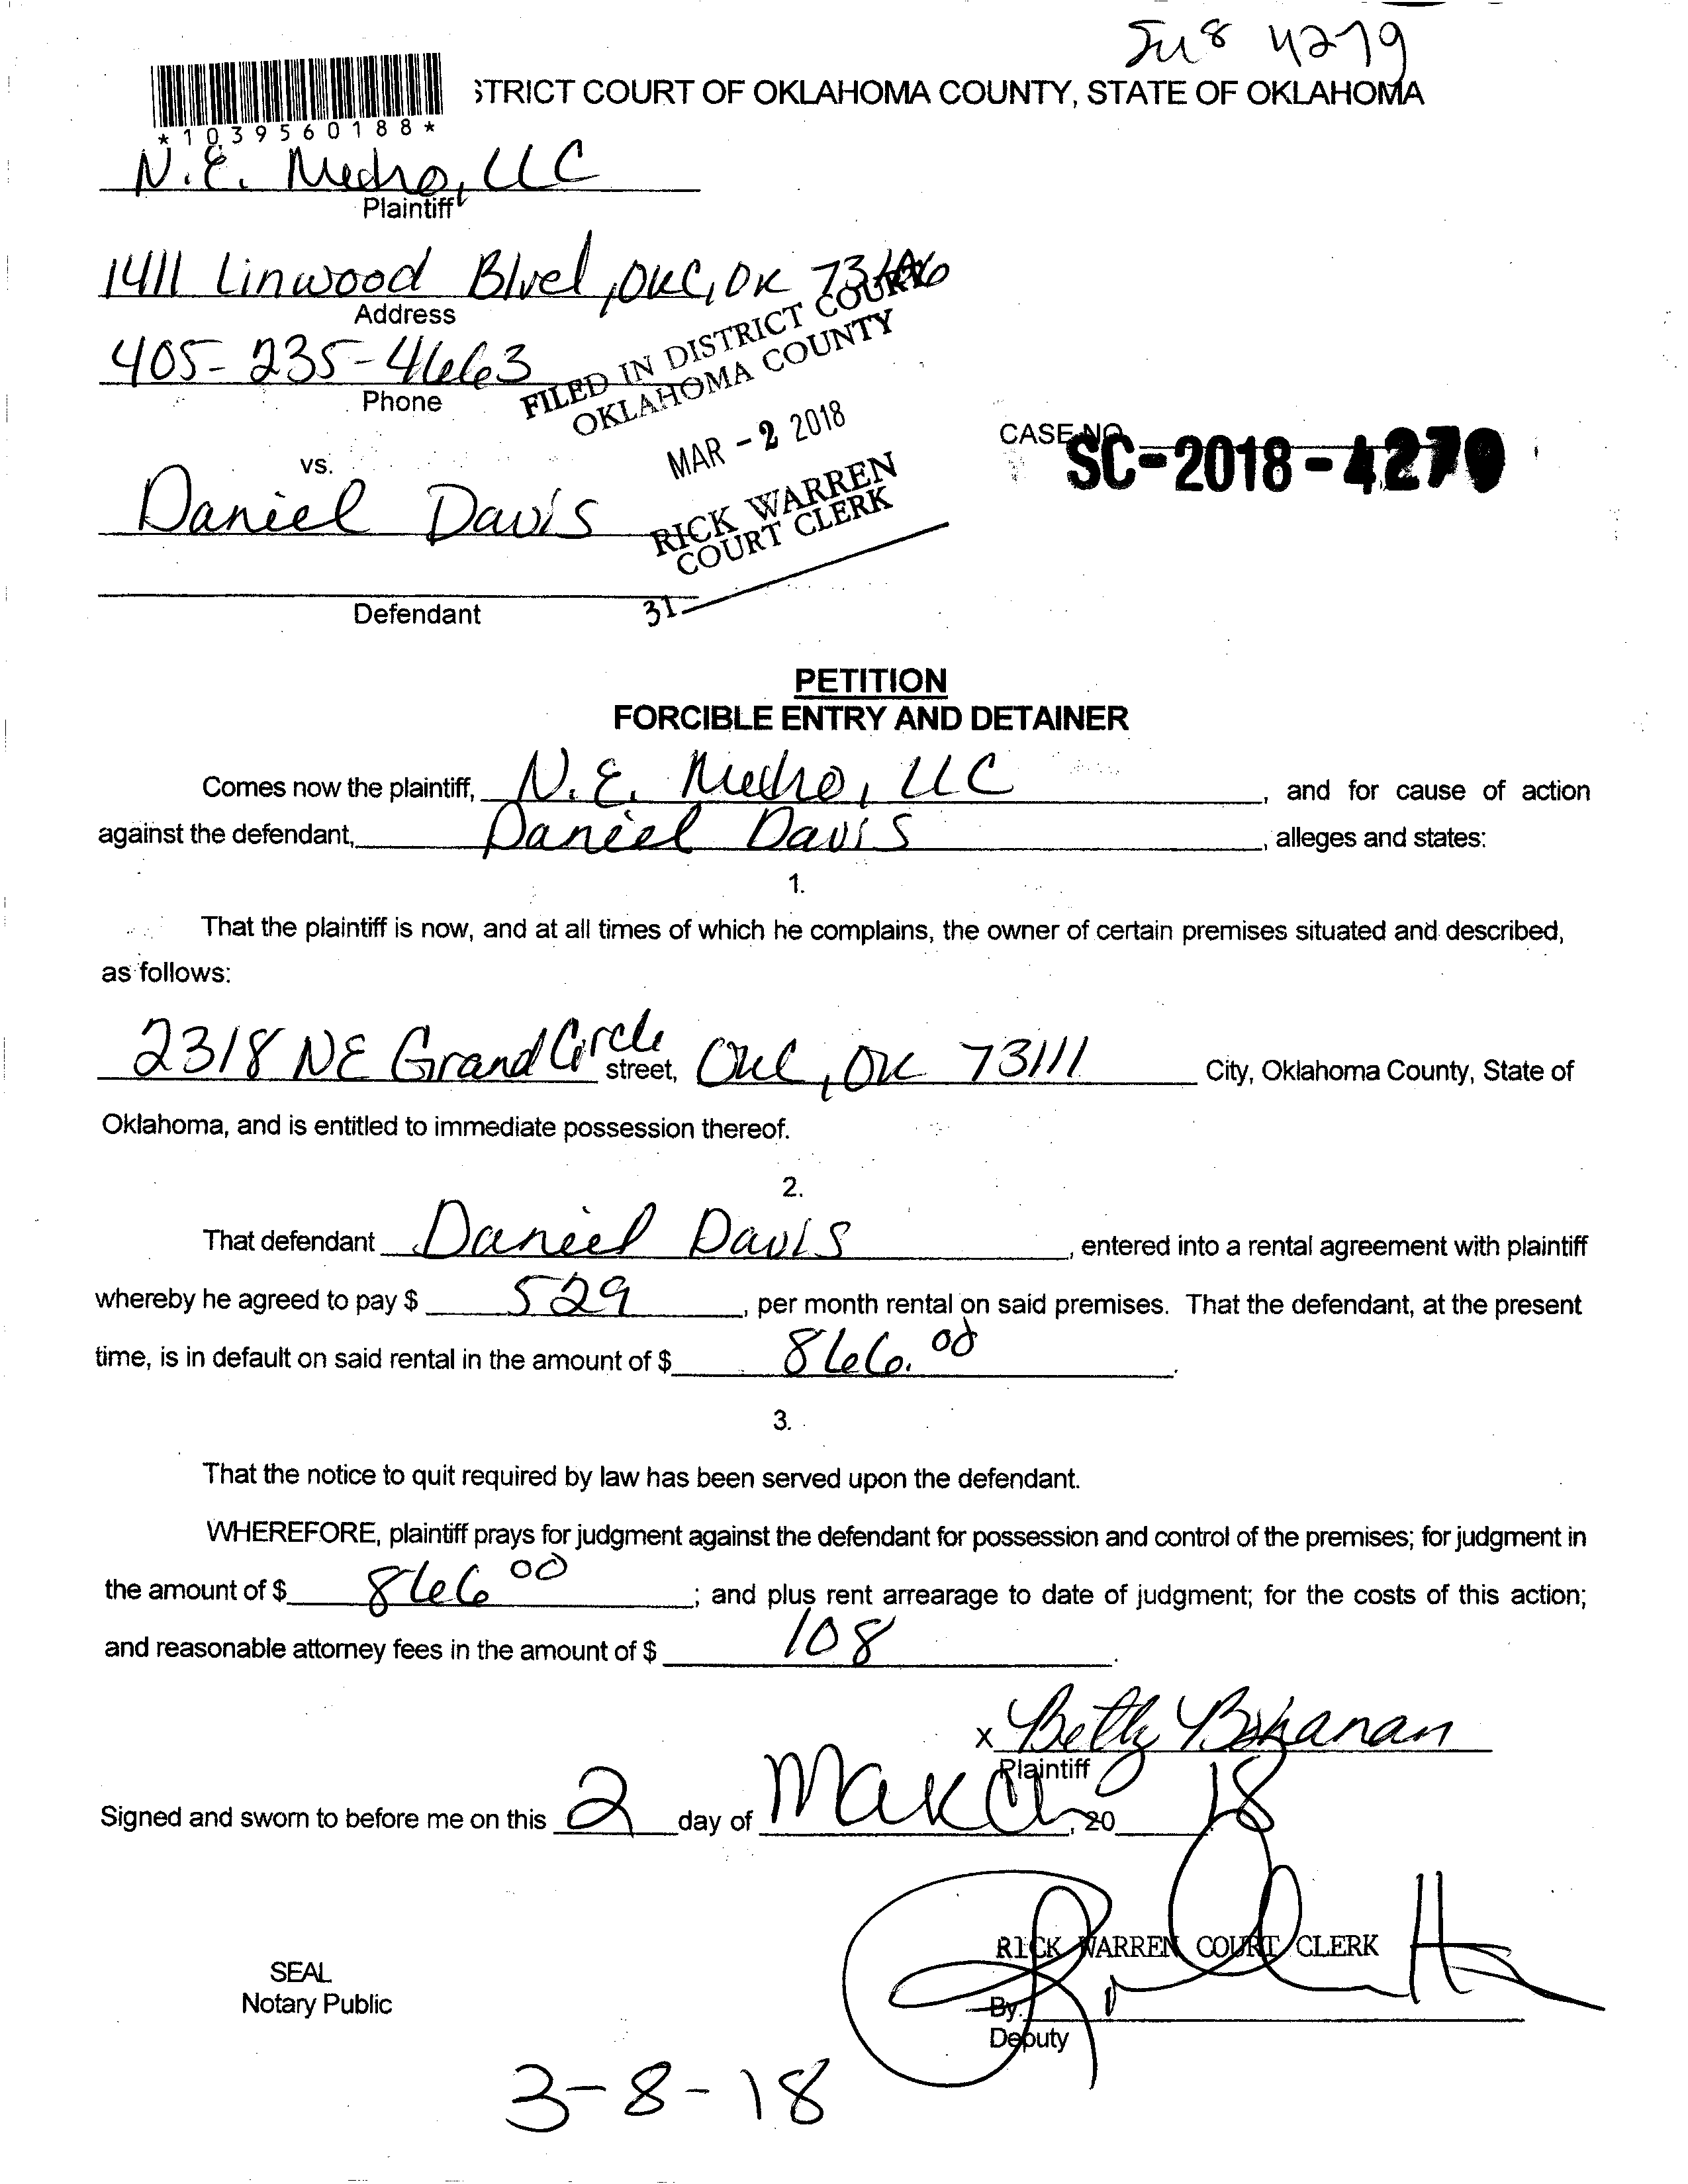 STRICT COURT OF OKLAHOMA COUNTY, STATE OF OKLAHOMA
*1039560188*
N.E. Medro, LLC
Plaintiff
1411 Linwood Blvd, OKC, OK
Address
405-235-4663
Phone
FILED IN DISTRICT COURT
OKLAHOMA COUNTY
MAR - 2 2018
RICK WARREN
COURT CLERK
31
CASE NO.
SC-2018-4279
vs.
Daniel Davis
Defendant
PETITION
FORCIBLE ENTRY AND DETAINER
Comes now the plaintiff, N.E. Medro, LLC, and for cause of action
against the defendant, Daniel Davis, alleges and states:
1.
That the plaintiff is now, and at all times of which he complains, the owner of certain premises situated and described,
as follows:
2318 NE Grand Circle street, OKC, OK 73111 City, Oklahoma County, State of
Oklahoma, and is entitled to immediate possession thereof.
2.
That defendant Daniel Davis, entered into a rental agreement with plaintiff
whereby he agreed to pay $ 529, per month rental on said premises. That the defendant, at the present
time, is in default on said rental in the amount of $ 866.00.
3.
That the notice to quit required by law has been served upon the defendant.
WHEREFORE, plaintiff prays for judgment against the defendant for possession and control of the premises; for judgment in
the amount of $ 866 00; and plus rent arrearage to date of judgment; for the costs of this action;
and reasonable attorney fees in the amount of $ 108.
x Betty Bohanan
Plaintiff
Signed and sworn to before me on this 2 day of March, 20 18
RICK WARREN COURT CLERK
SEAL
Notary Public
By:
Deputy
3-8-18